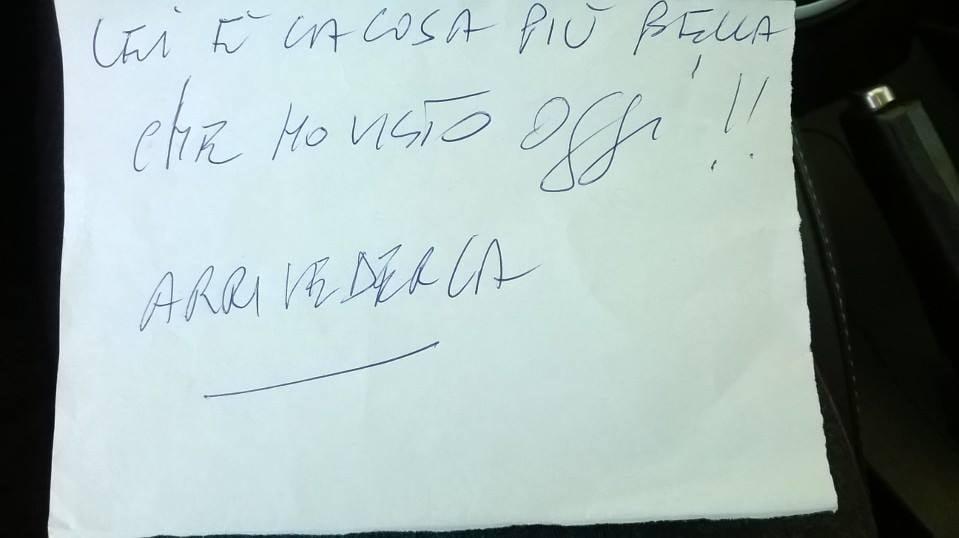 LEI È LA COSA PIÙ BELLA
CHE HO VISTO OGGI !!!
ARRIVEDERLA